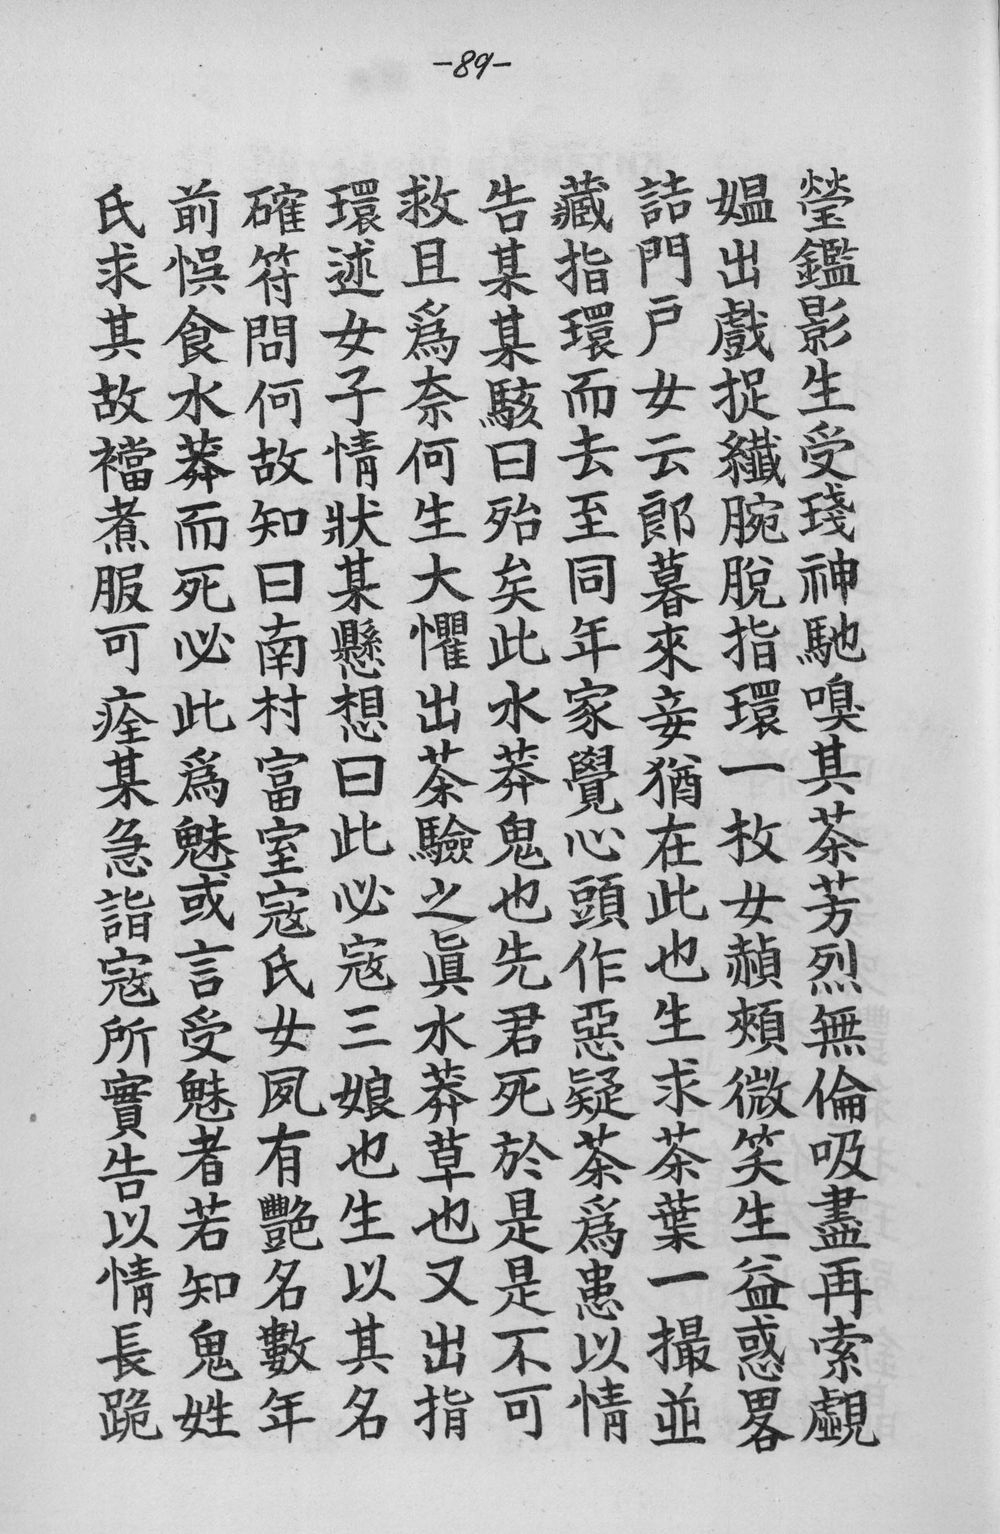 -89-
瑩鑑影生受琖神馳嗅其茶芳烈無倫吸盡再索覷
媼出戲捉纖腕脫指環一枚女赬頰微笑生益惑畧
詰門戶女云郎暮來妾猶在此也生求茶葉一撮並
藏指環而去至同年家覺心頭作惡疑茶爲患以情
告某某駭曰殆矣此水莽鬼也先君死於是是不可
救且爲奈何生大懼出茶驗之眞水莽草也又出指
環述女子情狀某懸想曰此必寇三娘也生以其名
確符問何故知曰南村富室寇氏女夙有艷名數年
前悞食水莽而死必此爲魅或言受魅者若知鬼姓
氏求其故襠煮服可痊某急詣寇所實告以情長跪